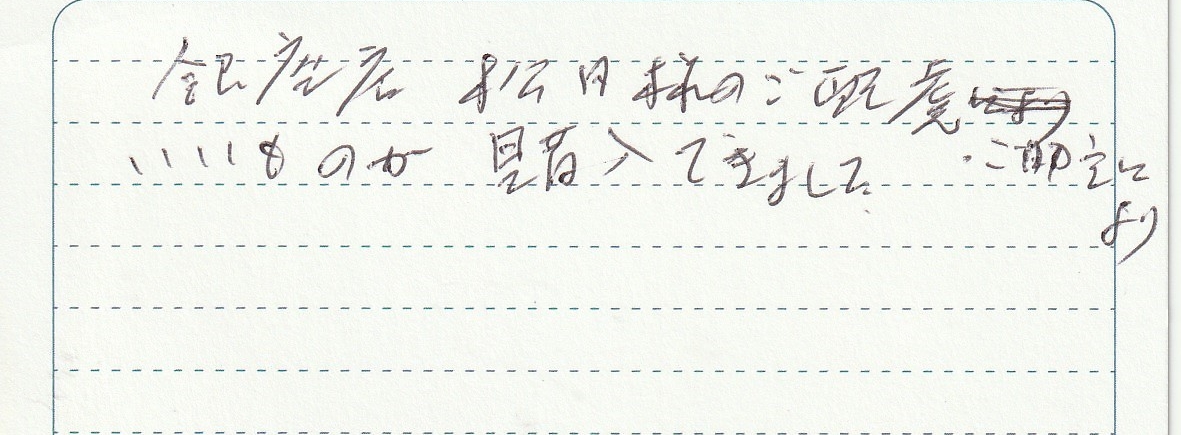 銀座店 松田様のご配慮
いいものが 購入できました ・ご助言に
より